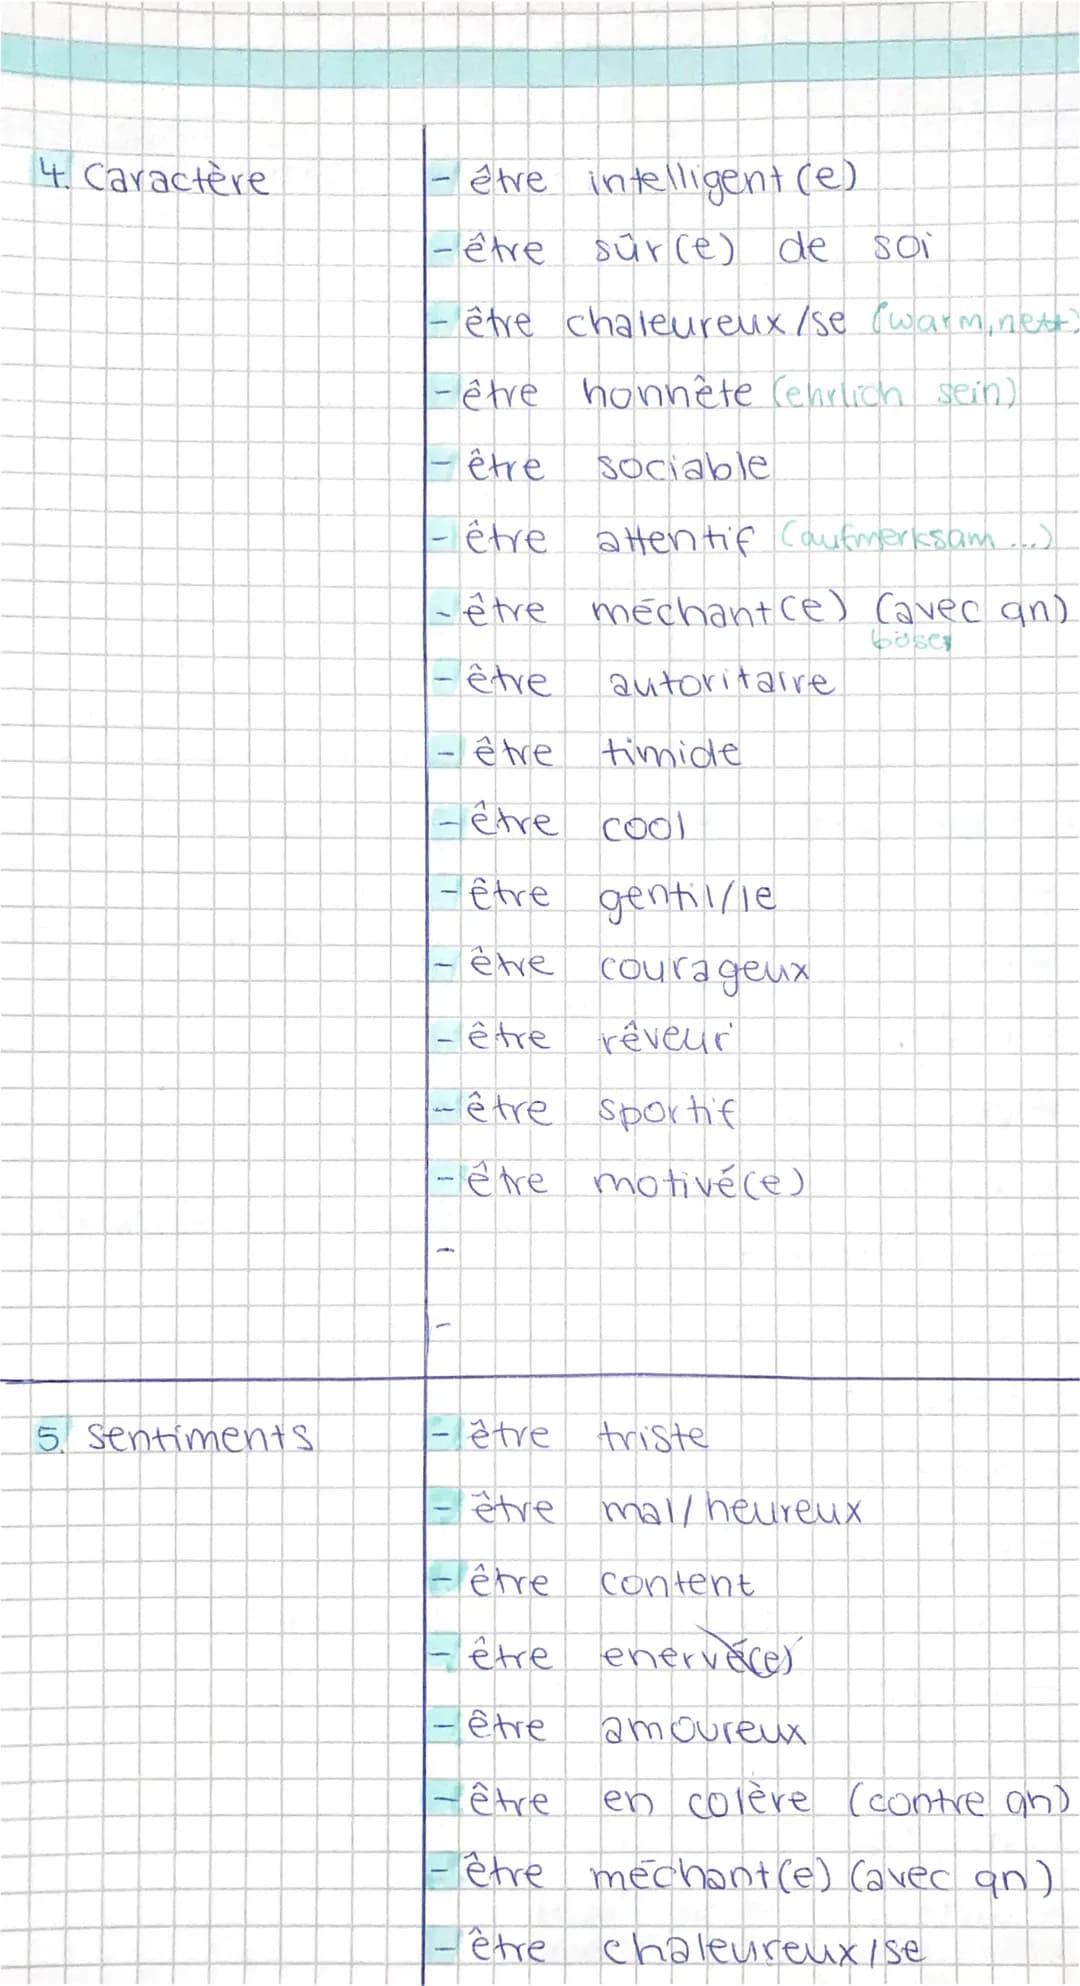 4. Caractère
- être intelligent(e)
- être sûr(e) de soi
- être chaleureux/se (warm, nett)
- être honnête (ehrlich sein)
- être sociable
- être attentif (aufmerksam ...)
- être méchant(e) (avec qn)
böse
- être autoritaire
- être timide
- être cool
- être gentil/le
- être courageux
- être rêveur
- être sportif
- être motivé(e)
-
-
5. sentiments
- être triste
- être mal/heureux
- être content
- être enervé(e)
- être amoureux
- être en colère (contre qn)
- être méchant(e) (avec qn)
- être chaleureux/se